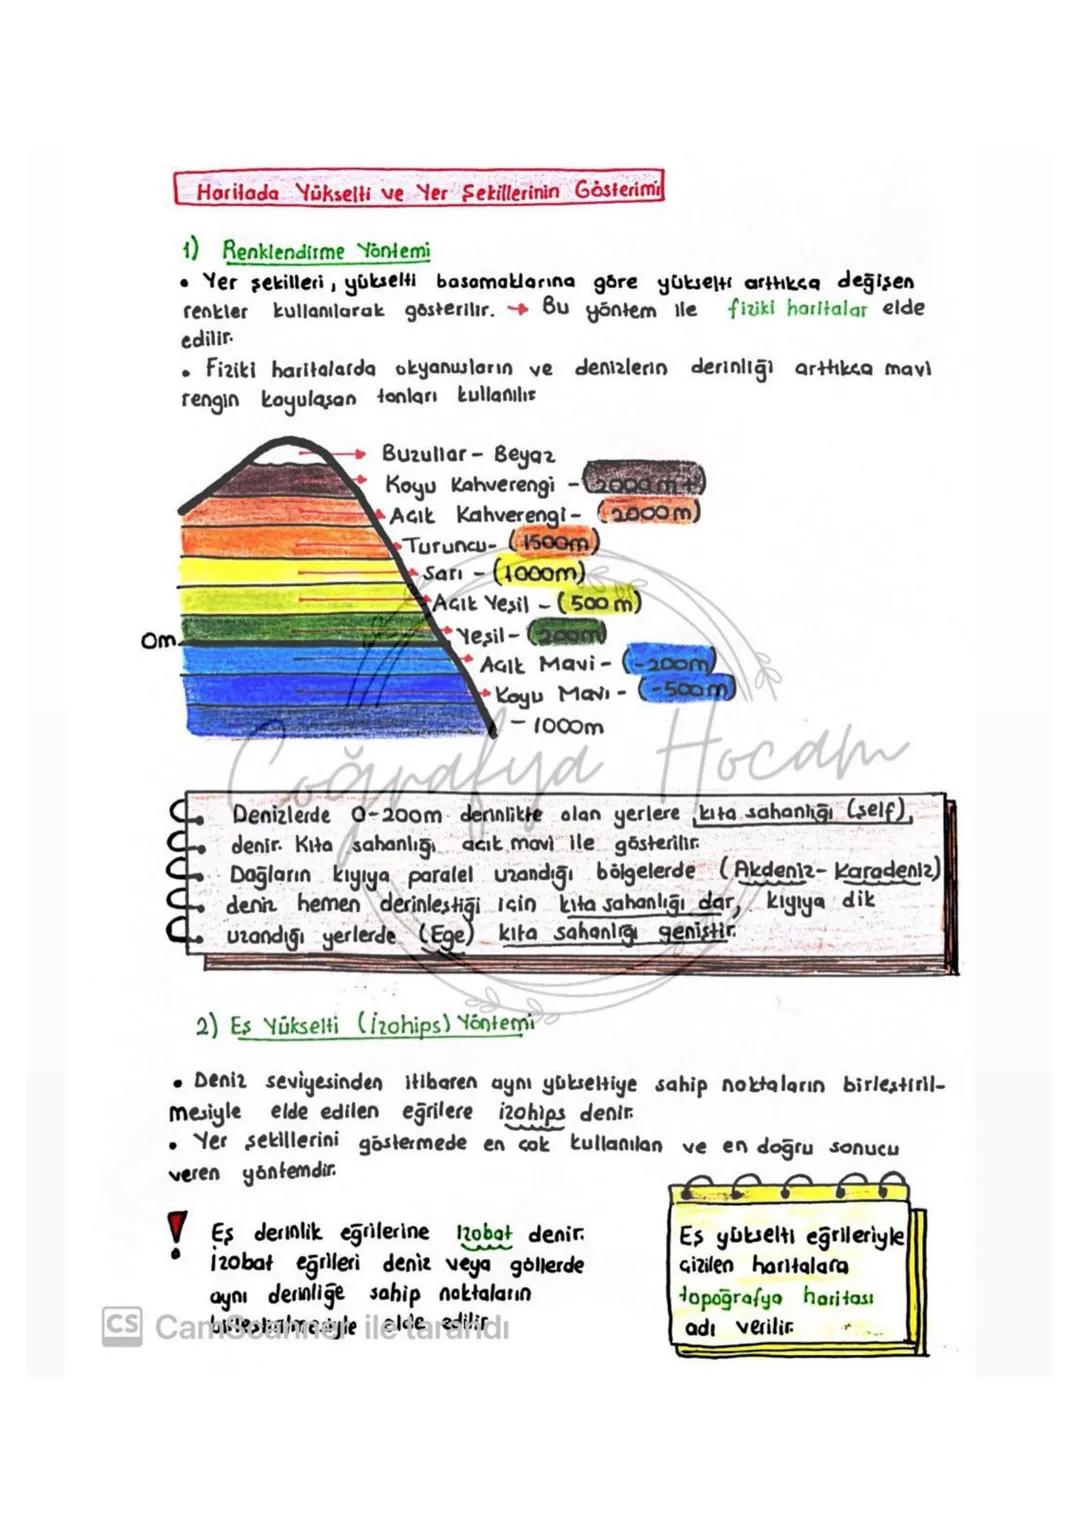 Haritada Yükselti ve Yer Şekillerinin Gösterimi
1) Renklendirme Yöntemi
• Yer şekilleri, yükselti basamaklarına göre yükselti arttıkça değişen
renkler kullanılarak gösterilir. → Bu yöntem ile fiziki haritalar elde
edilir.
• Fiziki haritalarda okyanusların ve denizlerin derinliği arttıkça mavi
rengin koyulaşan tonları kullanılır
Buzullar - Beyaz
Koyu Kahverengi - 2000 m +)
Açık Kahverengi - (2000 m)
Turuncu - (1500m)
Sarı - (1000m)
Açık Yeşil - (500 m)
0m.
Yeşil - (200m)
Açık Mavi - (-200m)
Koyu Mavi - (-500m)
- 1000m
Coğrafya Hocam
Denizlerde 0-200m derinlikte olan yerlere kıta sahanlığı (şelf)
denir. Kıta sahanlığı açık mavi ile gösterilir.
Dağların kıyıya paralel uzandığı bölgelerde (Akdeniz - Karadeniz)
deniz hemen derinleştiği için kıta sahanlığı dar, kıyıya dik
uzandığı yerlerde (Ege) kıta sahanlığı geniştir.
2) Eş Yükselti (İzohips) Yöntemi
• Deniz seviyesinden itibaren aynı yükseltiye sahip noktaların birleştiril-
mesiyle elde edilen eğrilere izohips denir.
• Yer şekillerini göstermede en çok kullanılan ve en doğru sonucu
veren yöntemdir.
! Eş derinlik eğrilerine izobat denir.
İzobat eğrileri deniz veya göllerde
aynı derinliğe sahip noktaların
birleştirilmesiyle elde edilir
CS CamScanner ile tarandı
Eş yükselti eğrileriyle
çizilen haritalara
topoğrafya haritası
adı verilir.